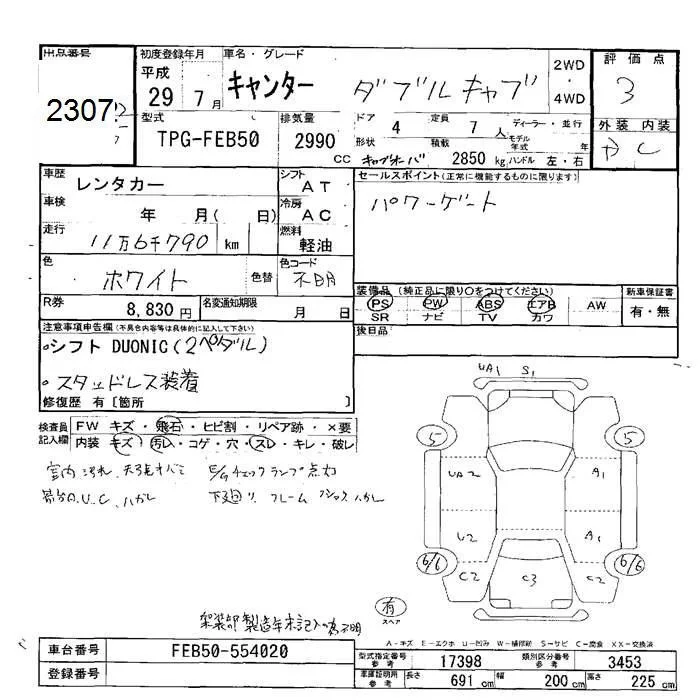 出品番号
2307
初度登録年月
平成
29 7月
車名・グレード
キャンター ダブルキャブ
2WD
・
4WD
評価点
3
型式
TPG-FEB50
排気量
2990
CC
ドア
4
定員
7人
ディーラー・並行
モデル年式 年
形状
キャブオーバ
積載
2850kg
ハンドル 左・右
外装 内装
C
車歴
レンタカー
シフト
AT
セールスポイント(正常に機能するものに限ります)
パワーゲート
車検
年 月( 日)
冷房
AC
走行
11万6千790 km
燃料
軽油
色
ホワイト
色替
色コード
不明
装備品(純正品に限り〇をつけてください)
PS PW ABS エアB AW
SR ナビ TV カワ
新車保証書
有・無
R券
8,830円
名変通知期限
月 日
後日品
注意事項申告欄(不具合内容等は具体的に記入して下さい)
・シフト DUONIC(2ペダル)
・スタッドレス装着
修復歴 有[箇所 ]
検査員記入欄
FW キズ・飛石・ヒビ割・リペア跡・×要
内装 キズ・汚れ・コゲ・穴・スレ・キレ・破レ
室内汚れ、
E/gチェックランプ点灯
下廻り、フレーム
UA1 S1
5 5
UA2 A1
U2 A1
6/6 6/6
C2 C3 C2
有
スペア
架装部製造年未記入の為不明
A-キズ E-エクボ U-凹み W-補修跡 S-サビ C-腐食 XX-交換済
車台番号
FEB50-554020
登録番号
型式指定番号 参考
17398
類別区分番号 参考
3453
車庫証明用 参考
長さ 691cm
幅 200cm
高さ 225cm